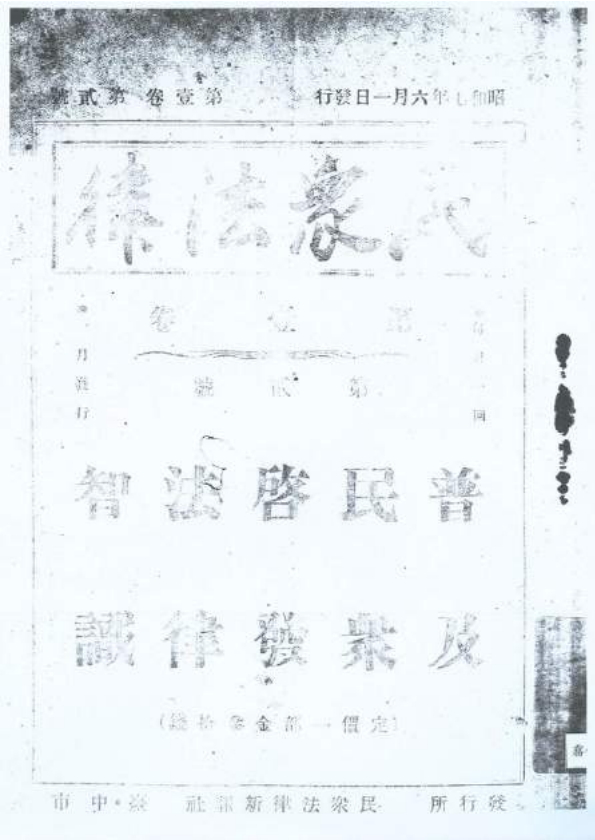 昭和七年六月一日發行 第壹卷 第貳號
民衆法律
第壹卷
第貳號
月一回
月發行
普及
民衆
啓發
法律
智識
(定價一部金參拾錢)
發行所 民衆法律新報社 臺中市